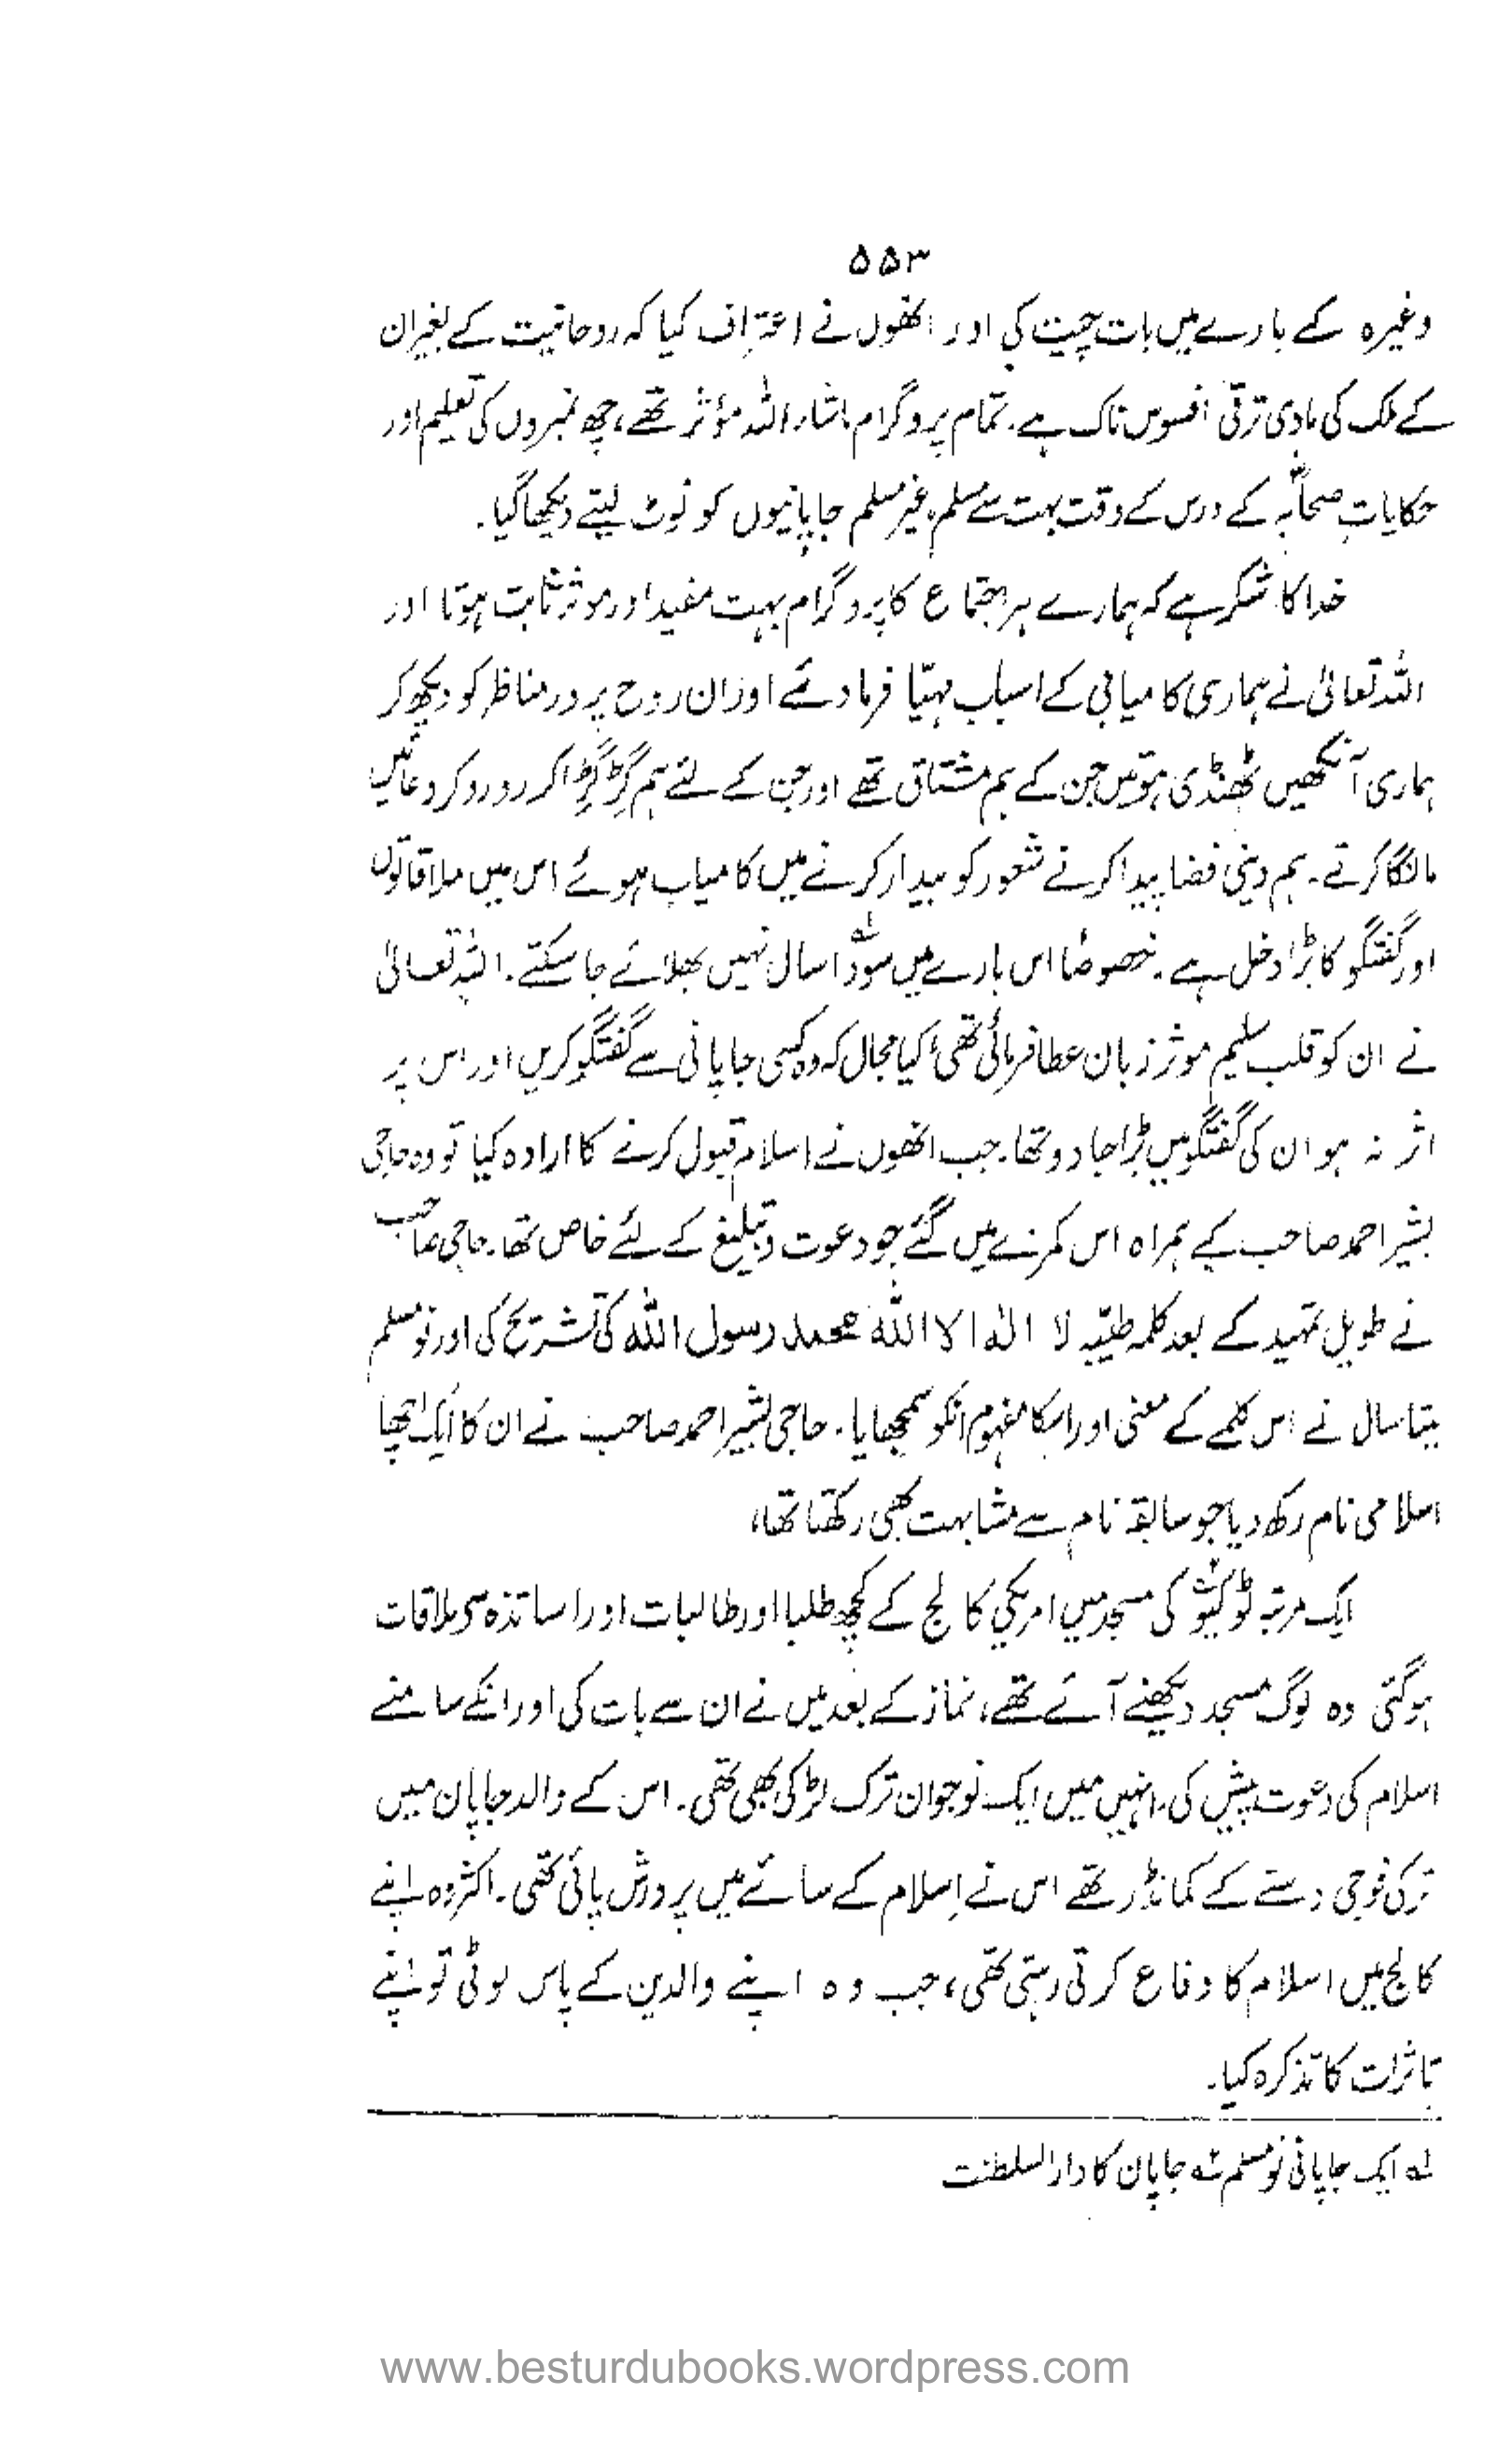 ۵۵۳
وغیرہ کے بارے میں بات چیت کی اور انھوں نے اعتراف کیا کہ روحانیت کے بغیر ان
کے ملک کی مادی ترقی افسوس ناک ہے۔ تمام پروگرام ماشاء اللہ مؤثر تھے، چھ نمبروں کی تعلیم اور
حکایاتِ صحابہؓ کے درس کے وقت بہت سے مسلم، غیر مسلم جاپانیوں کو نوٹ لیتے دیکھا گیا۔
خدا کا شکر ہے کہ ہمارے ہر اجتماع کا پروگرام بہت مفید اور موثر ثابت ہوتا اور
اللہ تعالیٰ نے ہماری کامیابی کے اسباب مہیّا فرما دئے اور ان روح پرور مناظر کو دیکھ کر
ہماری آنکھیں ٹھنڈی ہوتیں جن کے ہم مشتاق تھے اور جن کے لئے ہم گڑگڑا کر رو رو کر دعائیں
مانگا کرتے۔ ہم دینی فضا پیدا کرنے شعور کو بیدار کرنے میں کامیاب ہوئے اس میں ملاقاتوں
اور گفتگو کا بڑا دخل ہے۔ خصوصًا اس بارے میں سوڈا سال نہیں بھلائے جا سکتے۔ اللہ تعالیٰ
نے ان کو قلب سلیم موثر زبان عطا فرمائی تھی، کیا مجال کہ وہ کسی جاپانی سے گفتگو کریں اور اس پر
اثر نہ ہو ان کی گفتگو میں بڑا جادو تھا۔ جب انھوں نے اسلام قبول کرنے کا ارادہ کیا تو وہ حاجی
بشیر احمد صاحب کے ہمراہ اس کمرے میں گئے جو دعوت و تبلیغ کے لئے خاص تھا۔ حاجی صاحب
نے طویل تمہید کے بعد کلمہ طیّبہ لا الٰہ الا اللہ محمد رسول اللہ کی تشریح کی اور نومسلم
سال نے اس کلمے کے معنی اور اسکا مفہوم انکو سمجھایا۔ حاجی بشیر احمد صاحب نے ان کا ایک اچھا
اسلامی نام رکھ دیا جو سابقہ نام سے مشابہت بھی رکھتا تھا،
ایک مرتبہ ٹوکیو کی مسجد میں امریکی کالج کے کچھ طلبا اور طالبات اور اساتذہ سے ملاقات
ہوگئی وہ لوگ مسجد دیکھنے آئے تھے، نماز کے بعد میں نے ان سے بات کی اور انکے سامنے
اسلام کی دعوت پیش کی، انہیں میں ایک نوجوان ترک لڑکی بھی تھی۔ اس کے والد جاپان میں
ترکی فوجی دستے کے کمانڈر تھے اس نے اسلام کے سائے میں پرورش پائی تھی۔ اکثر وہ اپنے
کالج میں اسلام کا دفاع کرتی رہتی تھی، جب وہ اپنے والدین کے پاس لوٹی تو اپنے
تاثرات کا تذکرہ کیا۔
لہ ایک جاپانی نو مسلم ٢ہ جاپان کا دارالسلطنت
www.besturdubooks.wordpress.com